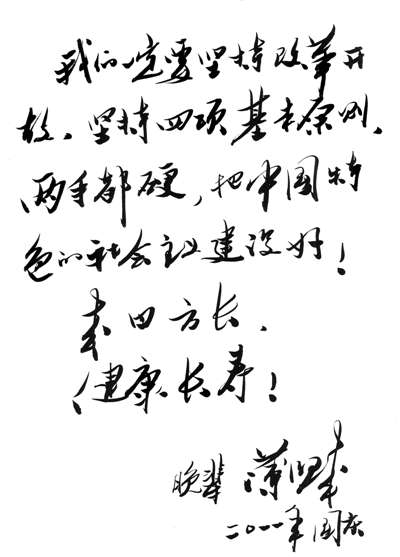 我们一定要坚持改革开
放、坚持四项基本原则、
两手都硬，把中国特
色的社会主义建设好！
来日方长、
健康长寿！
晚辈 薄熙来
二〇一一年国庆